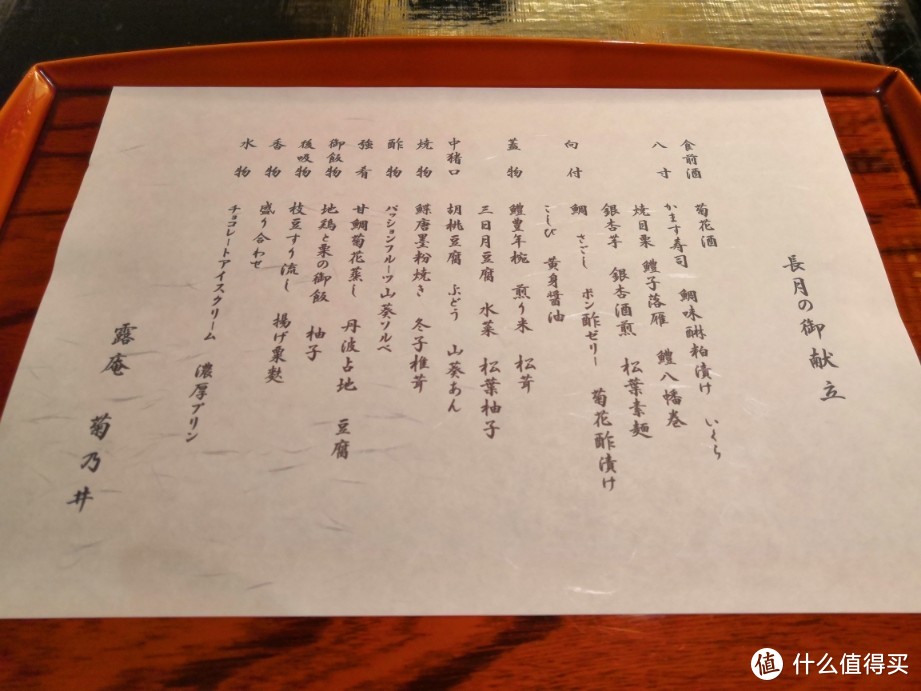 長月の御献立
食前酒 菊花酒
八寸 かます寿司 鯛味醂粕漬け いくら
焼目栗 鱧子落雁 鱧八幡巻
銀杏芋 銀杏酒煎 松葉素麺
向付 鯛 さごし ポン酢ゼリー 菊花酢漬け
こしび 黄身醤油
蓋物 鱧豊年椀 煎り米 松茸
三日月豆腐 水菜 松葉柚子
中猪口 胡桃豆腐 ぶどう 山葵あん
焼物 鰈唐墨粉焼き 冬子椎茸
酢物 パッションフルーツ山葵ソルベ
強肴 甘鯛菊花蒸し 丹波占地 豆腐
御飯物 地鶏と栗の御飯 柚子
後吸物 枝豆すり流し 揚げ粟麩
香物 盛り合わせ
水物 チョコレートアイスクリーム 濃厚プリン
露庵 菊乃井
值 什么值得买